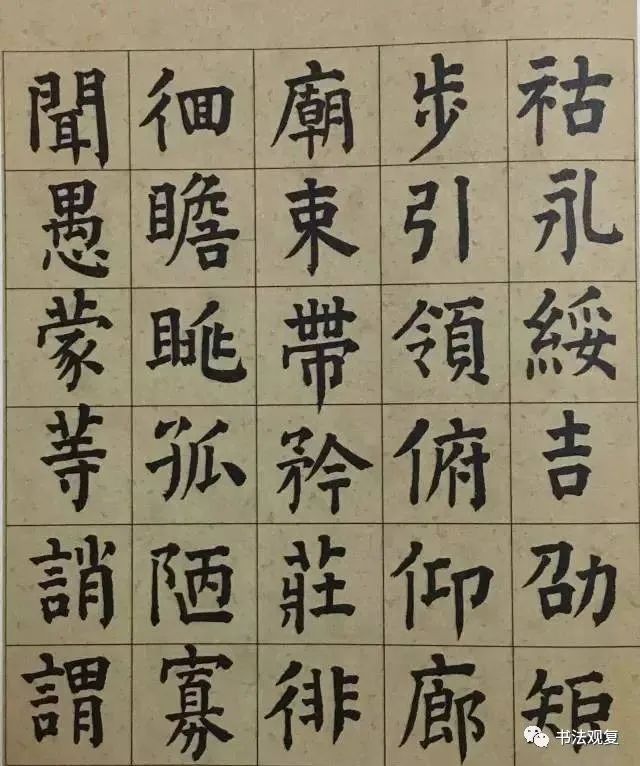 祜永綏吉劭矩
步引領俯仰廊
廟束帶矜莊徘
徊瞻眺孤陋寡
聞愚蒙等誚謂
书法观复